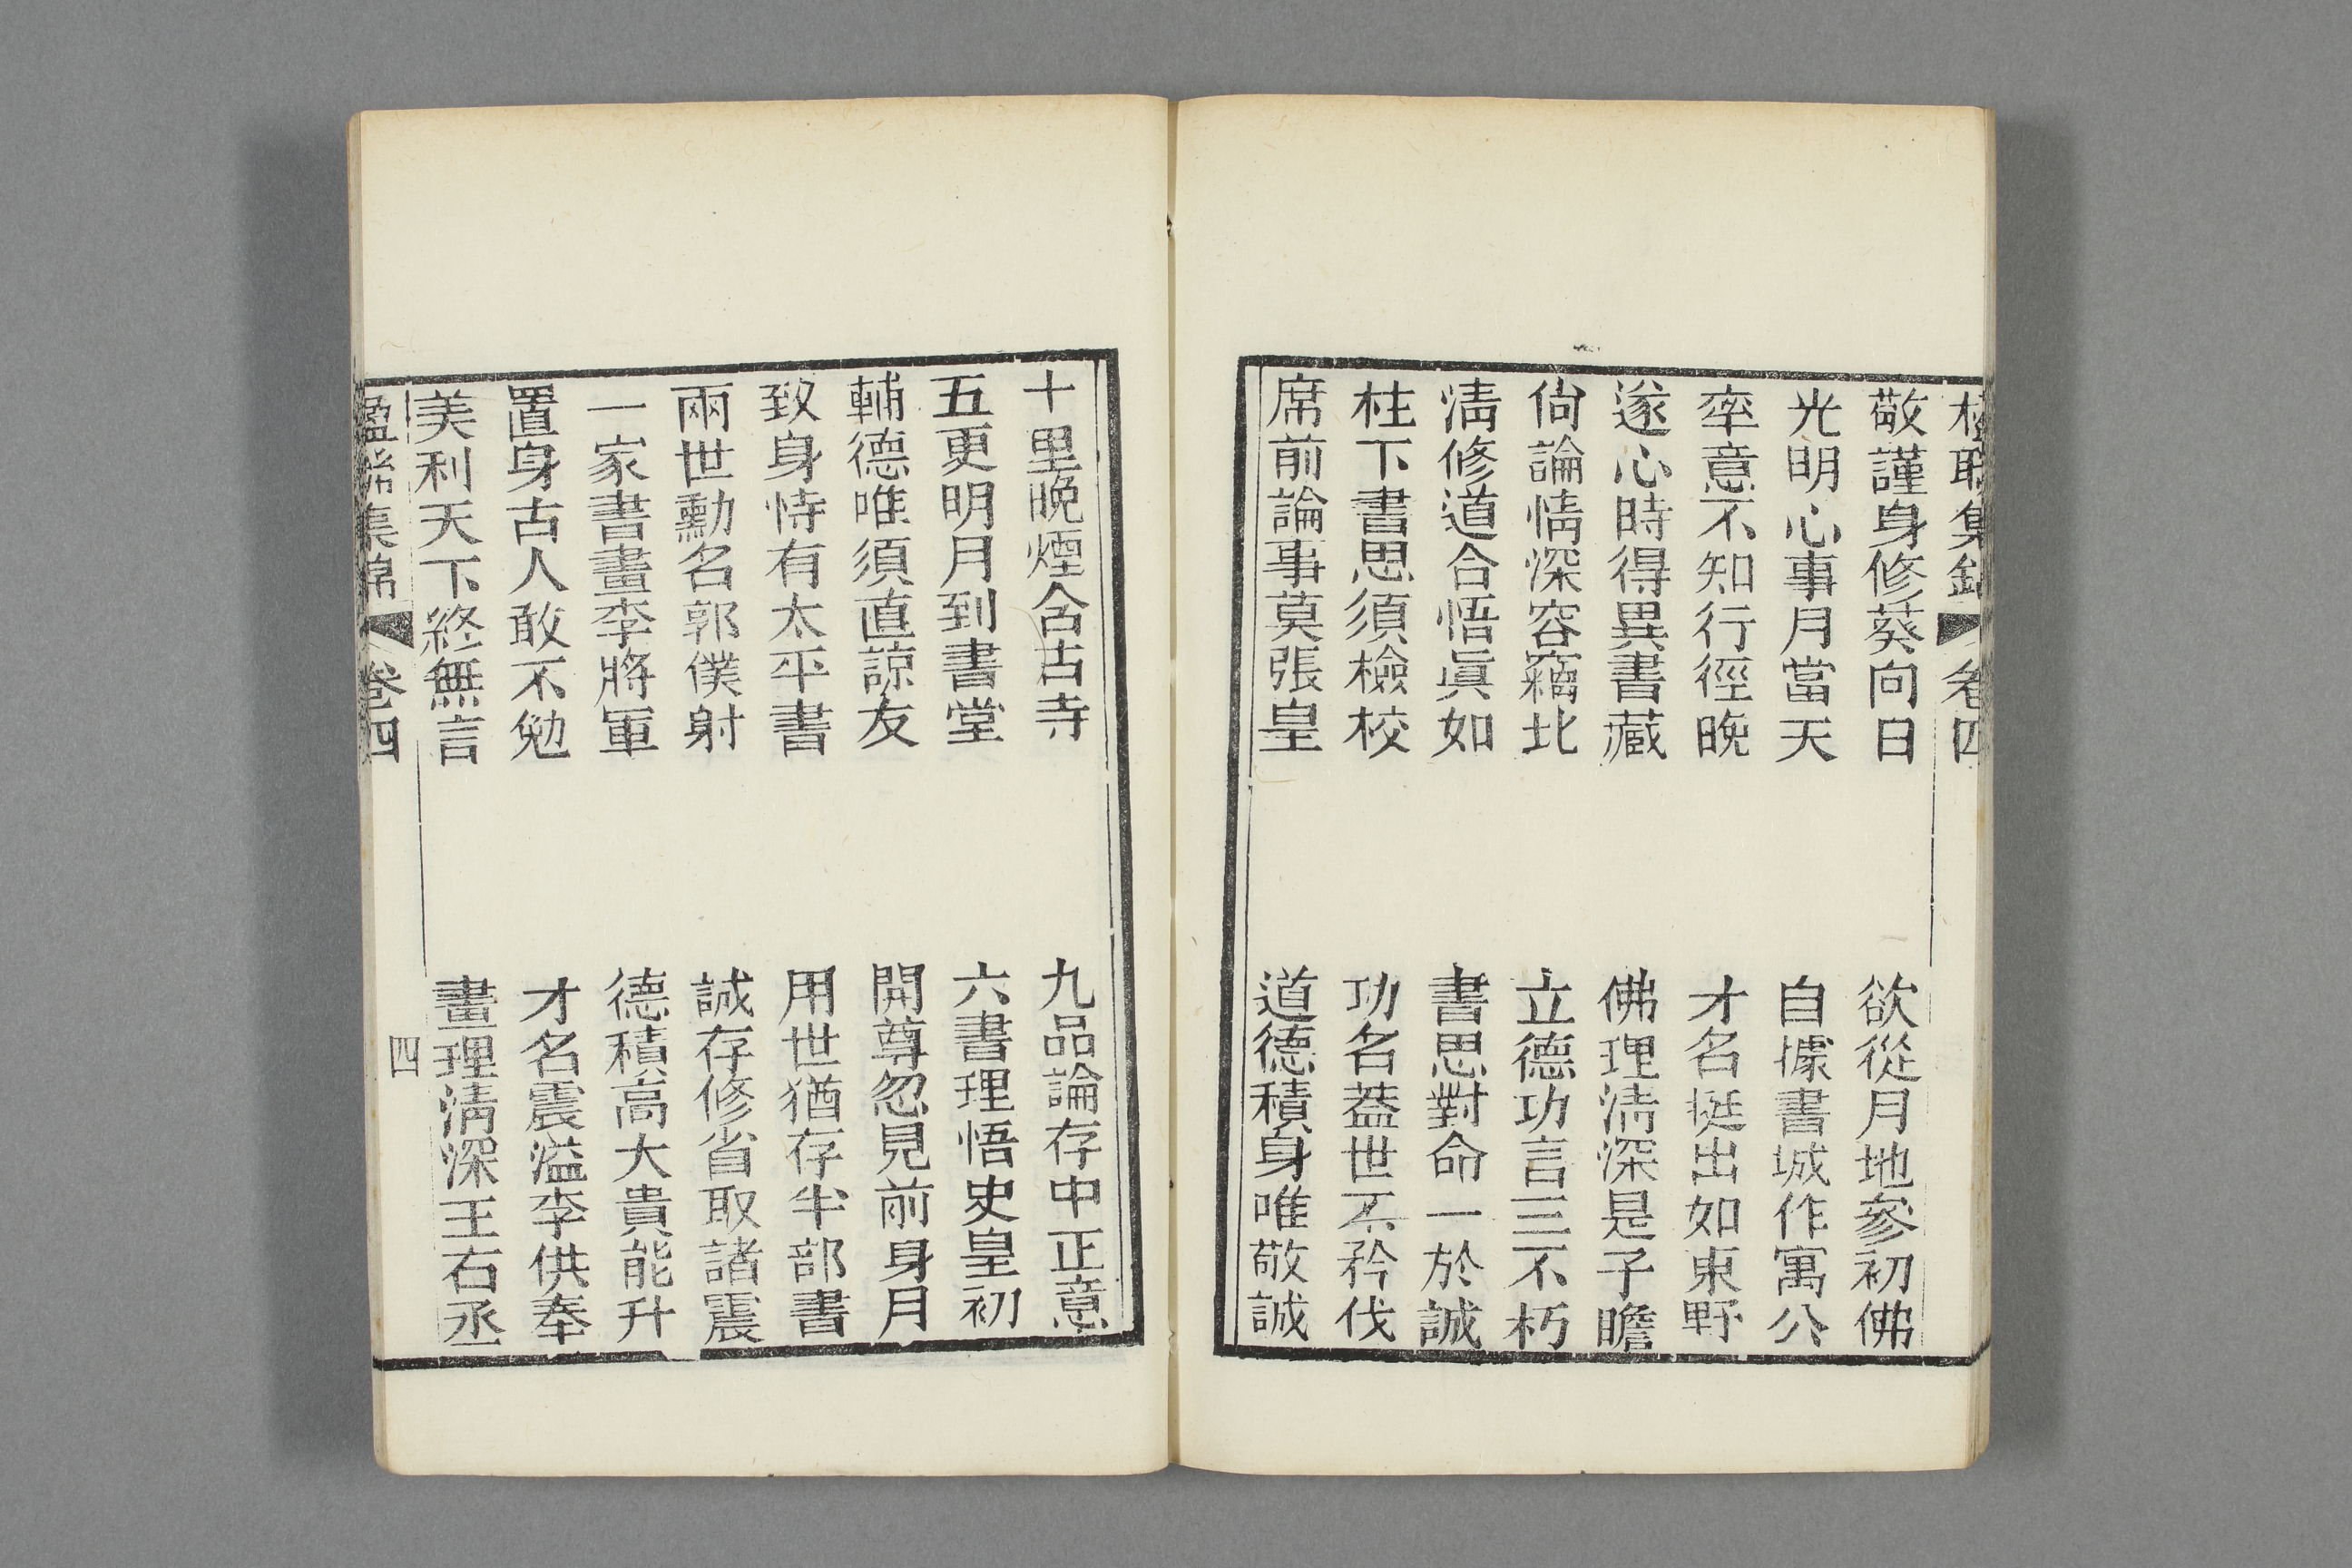 聯集錦 卷四
敬謹身修葵向日
欲從月地參初佛
光明心事月當天
自據書城作寓公
率意不知行徑晚
才名挺出如東野
遂心時得異書藏
佛理清深是子瞻
尙論情深容竊北
立德功言三不朽
清修道合悟眞如
書思對命一於誠
柱下書思須檢校
功名蓋世不矜伐
席前論事莫張皇
道德積身唯敬誠
十里晚煙含古寺
九品論存中正意
五更明月到書堂
六書理悟史皇初
輔德唯須直諒友
開尊忽見前身月
致身恃有太平書
用世猶存半部書
兩世勳名郭僕射
誠存修省取諸震
一家書畫李將軍
德積高大貴能升
置身古人敢不勉
才名震溢李供奉
美利天下終無言
畫理清深王右丞
楹聯集錦 卷四
四